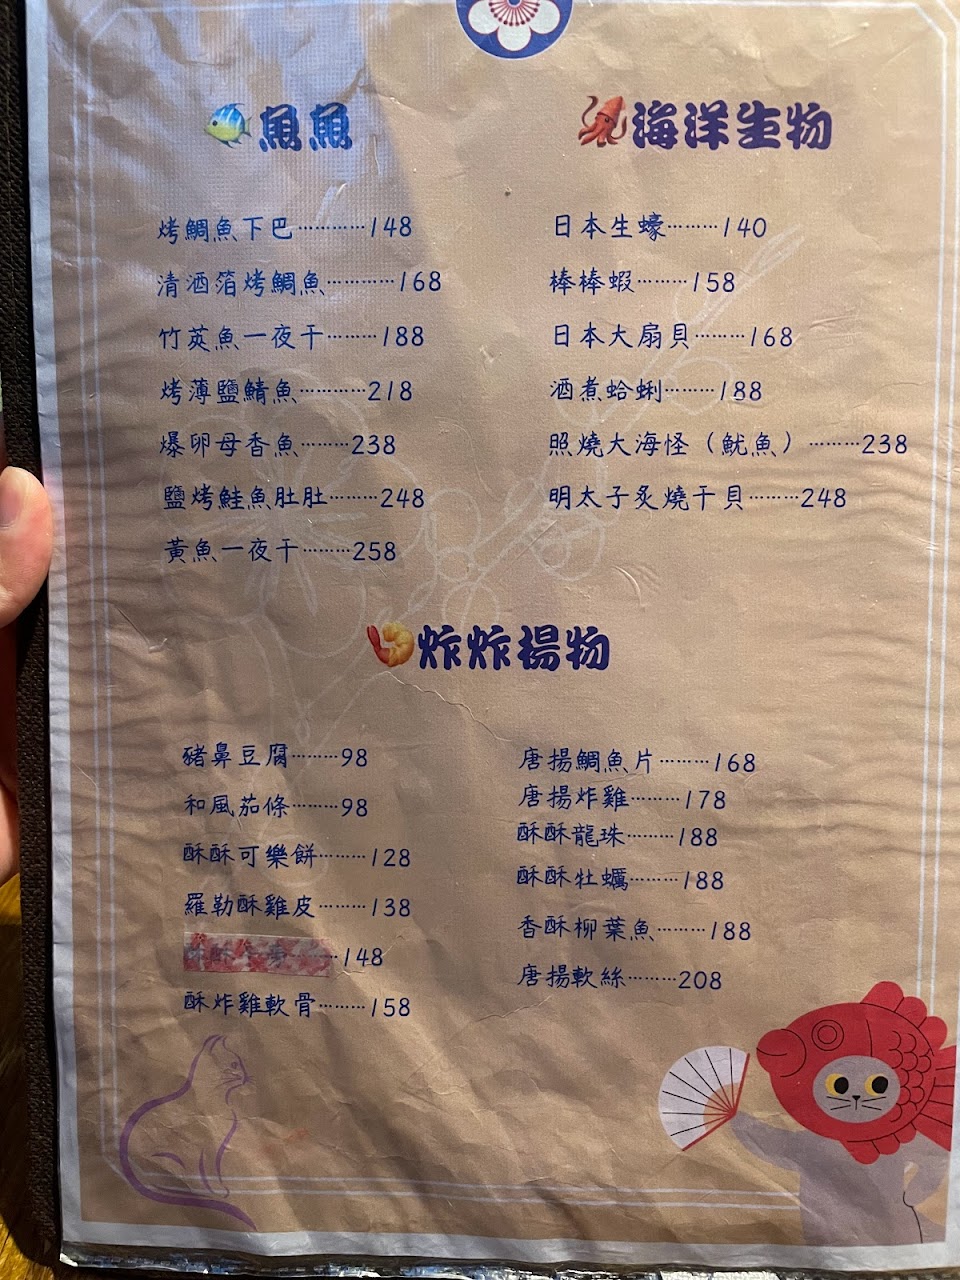 魚魚
烤鯛魚下巴…………148
清酒箔烤鯛魚…………168
竹莢魚一夜干………188
烤薄鹽鯖魚…………218
爆卵母香魚………238
鹽烤鮭魚肚肚………248
黃魚一夜干………258
海洋生物
日本生蠔………140
棒棒蝦………158
日本大扇貝………168
酒煮蛤蜊………188
照燒大海怪（魷魚）………238
明太子炙燒干貝………248
炸炸揚物
豬鼻豆腐………98
和風茄條………98
酥酥可樂餅………128
羅勒酥雞皮………138
………148
酥炸雞軟骨………158
唐揚鯛魚片………168
唐揚炸雞………178
酥酥龍珠………188
酥酥牡蠣………188
香酥柳葉魚………188
唐揚軟絲………208